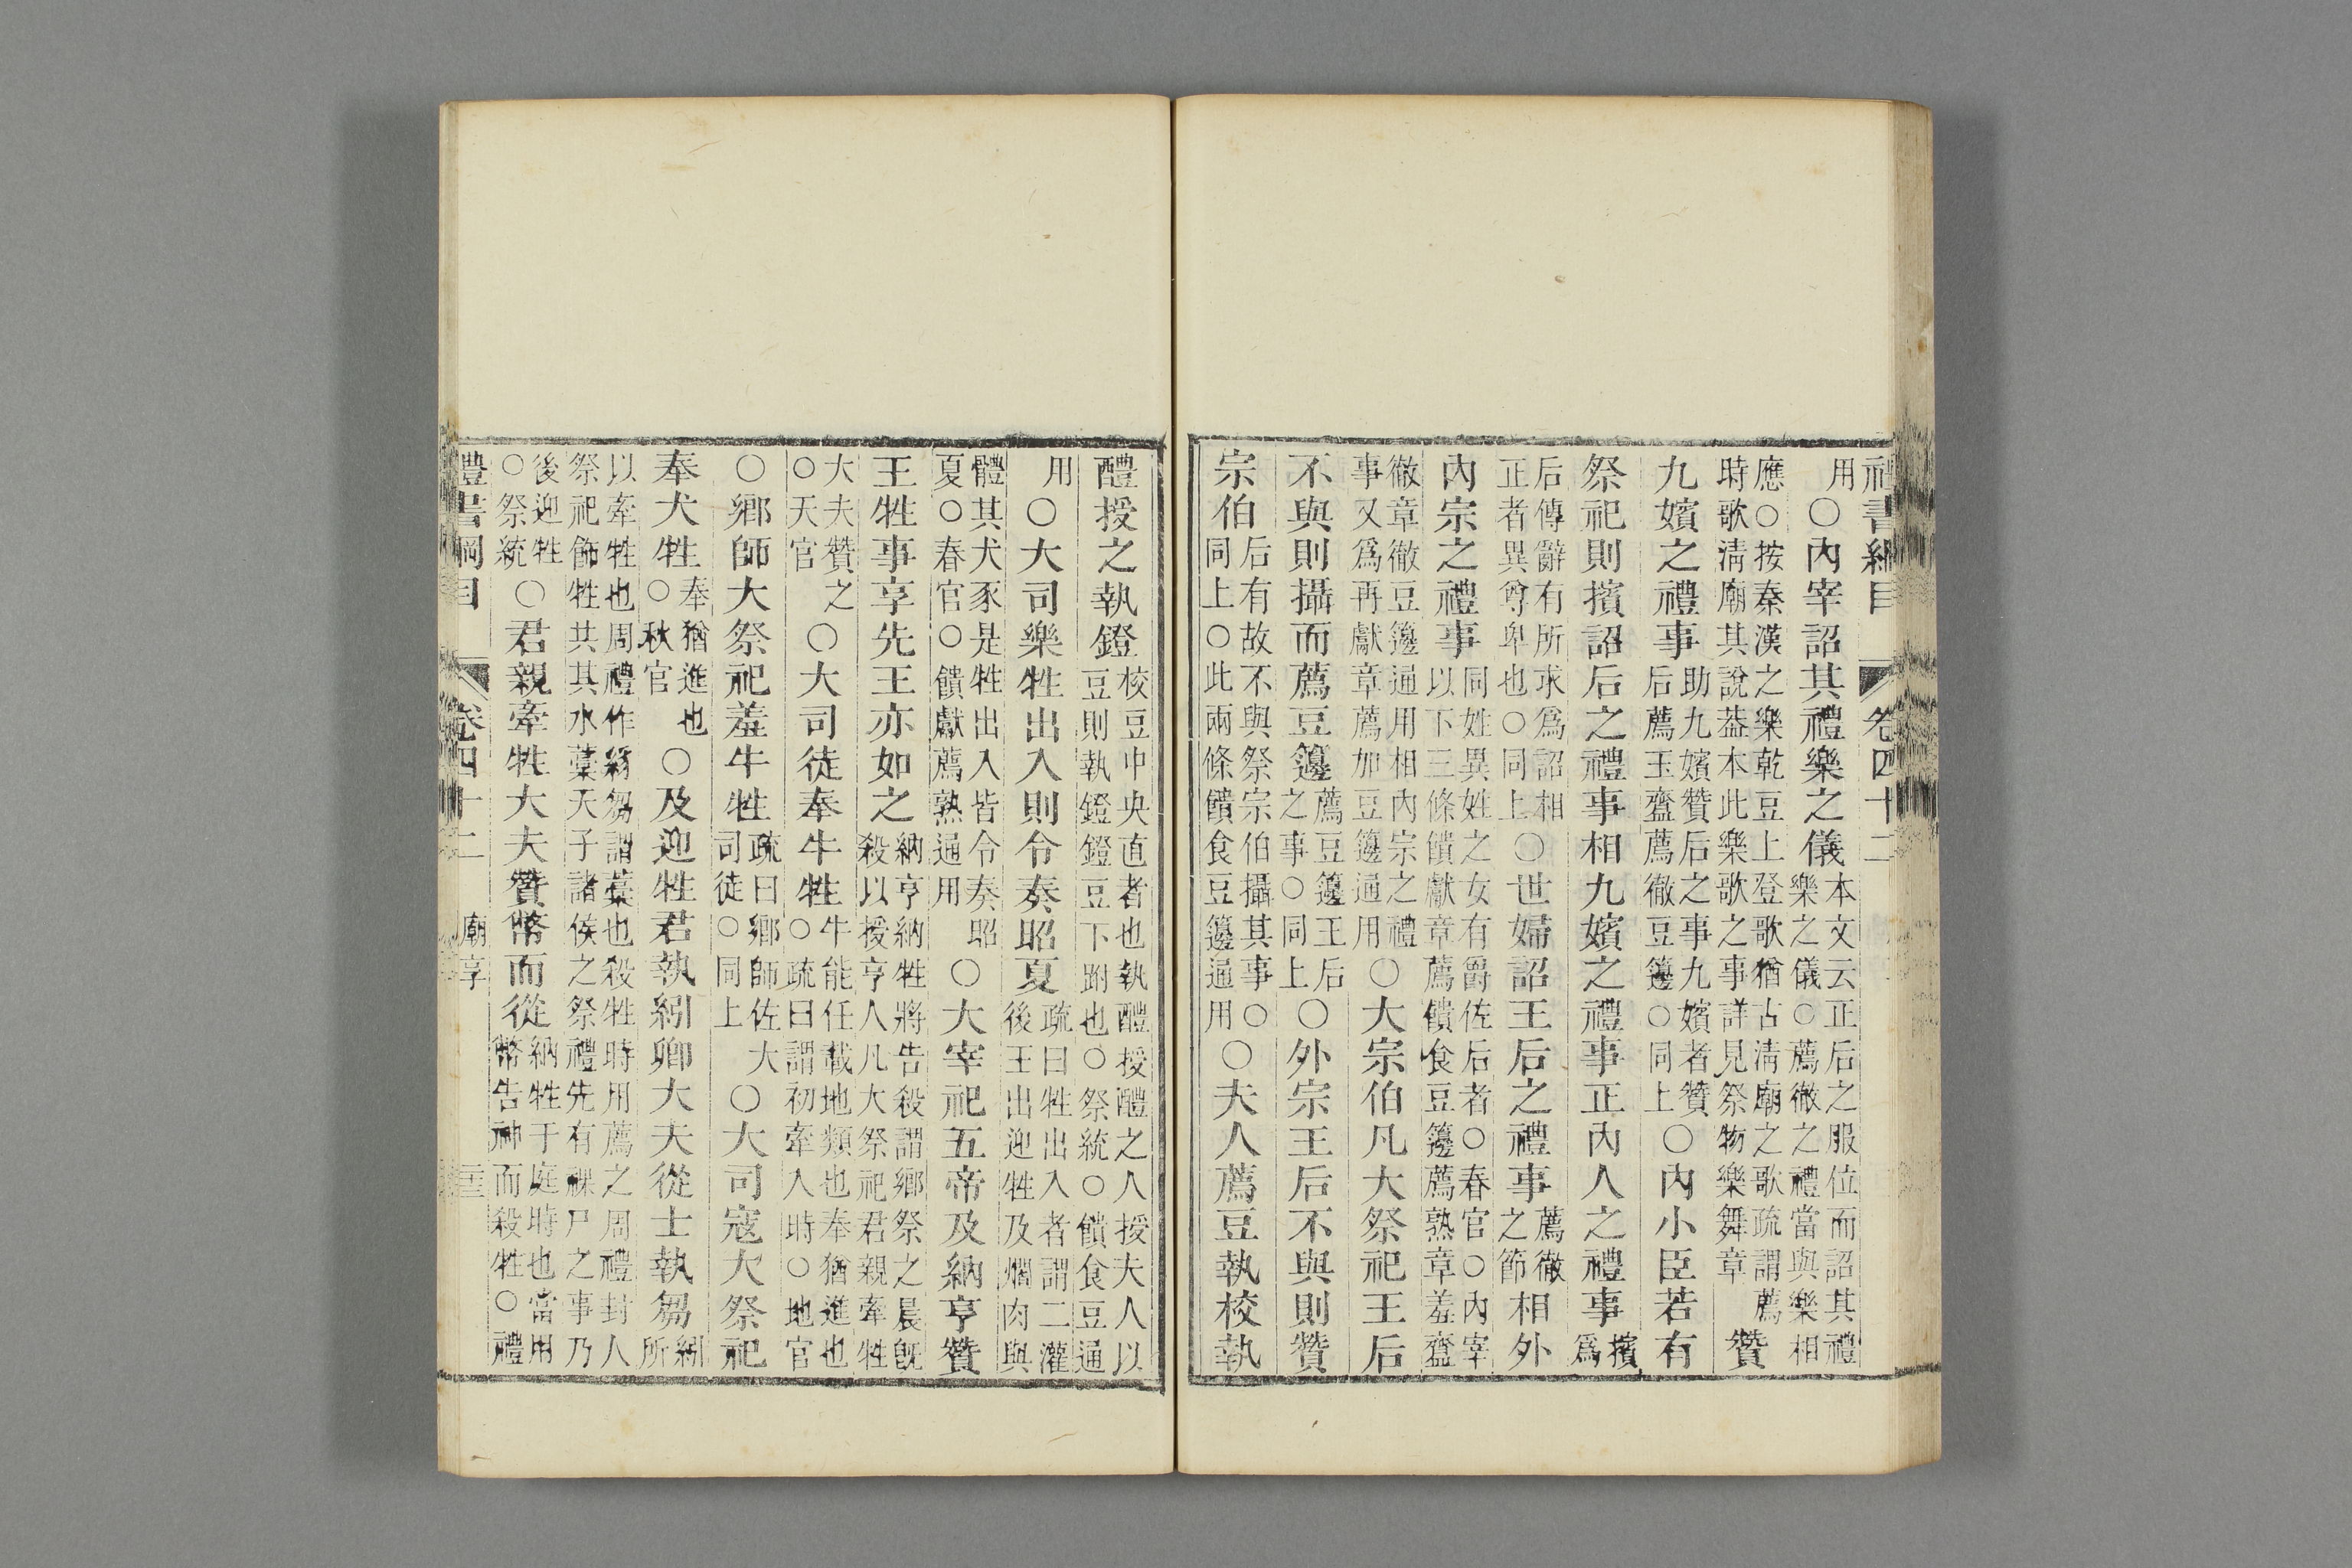 禮書綱目 卷四十二
用○內宰詔其禮樂之儀本文云正后之服位而詔其禮樂之儀○薦徹之禮當與樂相
應○按秦漢之樂乾豆上登歌猶古淸廟之歌疏謂薦時歌淸廟其說葢本此樂歌之事詳見祭物樂舞章贊
九嬪之禮事助九嬪贊后之事九嬪者贊后薦玉齍薦徹豆籩○同上○內小臣若有
祭祀則擯詔后之禮事相九嬪之禮事正內人之禮事擯爲
后傳辭有所求爲詔相正者異尊卑也○同上○世婦詔王后之禮事薦徹之節相外
內宗之禮事同姓異姓之女有爵佐后者○春官○內宰以下三條饋獻章薦饋食豆籩薦熟章羞齍
徹章徹豆籩通用相內宗之禮事又爲再獻章薦加豆籩通用○大宗伯凡大祭祀王后
不與則攝而薦豆籩薦豆籩王后之事○同上○外宗王后不與則贊
宗伯后有故不與祭宗伯攝其事○同上○此兩條饋食豆籩通用○夫人薦豆執校執
醴授之執鐙校豆中央直者也執醴授醴之人授夫人以豆則執鐙鐙豆下跗也○祭統○饋食豆通
用○大司樂牲出入則令奏昭夏疏曰牲出入者謂二灌後王出迎牲及爓肉與
體其犬豕是牲出入皆令奏昭夏○春官○饋獻薦熟通用○大宰祀五帝及納亨贊
王牲事享先王亦如之納亨納牲將告殺謂鄉祭之晨旣殺以授亨人凡大祭祀君親牽牲
大夫贊之○天官○大司徒奉牛牲牛能任載地類也奉猶進也○疏曰謂初牽入時○地官
○鄉師大祭祀羞牛牲疏曰鄉師佐大司徒○同上○大司寇大祭祀
奉犬牲奉猶進也○秋官○及迎牲君執紖卿大夫從士執芻紖所
以牽牲也周禮作紖芻謂藁也殺牲時用薦之周禮封人祭祀飾牲共其水藁天子諸侯之祭禮先有祼尸之事乃
後迎牲○祭統○君親牽牲大夫贊幣而從納牲于庭時也當用幣告神而殺牲○禮
禮書綱目 卷四十二 廟享